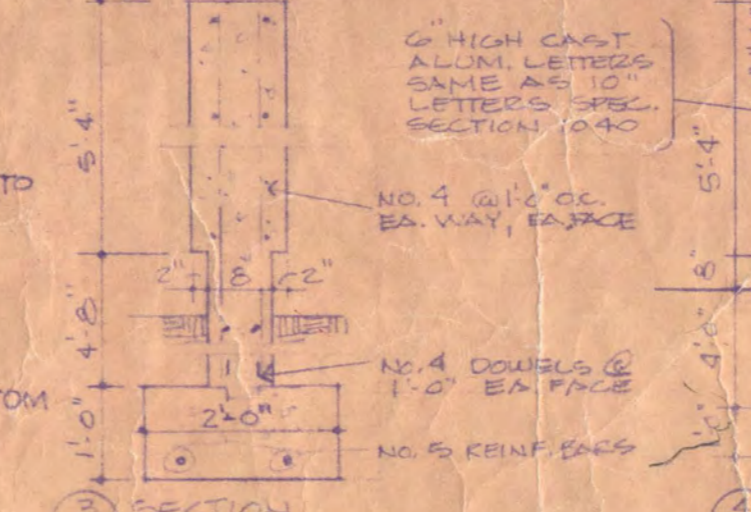 6" HIGH CAST
ALUM. LETTERS
SAME AS 10"
LETTERS SPEC.
SECTION 1040
5'-4"
TO
NO. 4 @ 1'-0" O.C.
EA. WAY, EA. FACE
5'-4"
2" 8" 2"
8"
4'-8"
4'-8"
NO. 4 DOWELS @
1'-0" EA. FACE
TOM
1'-0"
2'-0"
NO. 5 REINF. BARS
3 SECTION
4